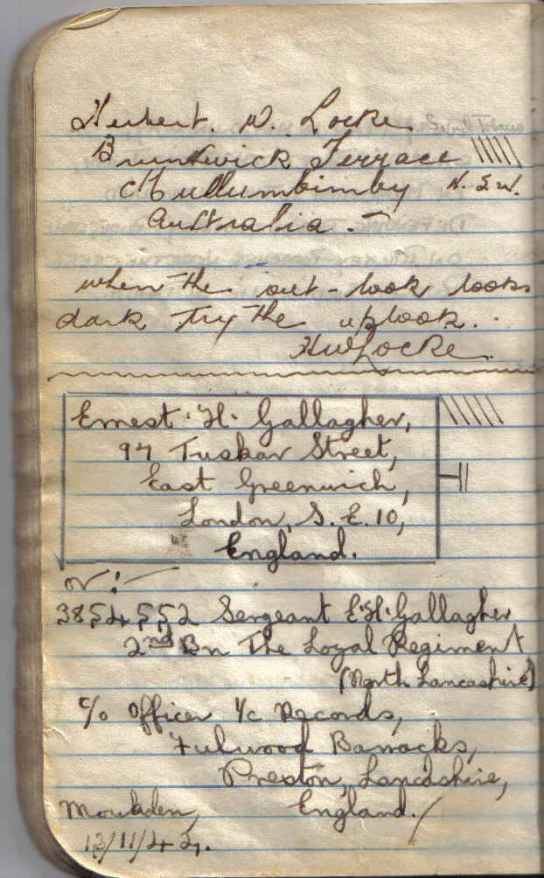 Herbert. W. Locke
Brunswick Terrace
Mullumbimby N.S.W.
Australia.-
when the out-look looks
dark try the uplook..
HWLocke.
Ernest. H. Gallagher,
97 Tuskar Street,
East Greenwich,
London, S.E.10,
England.
or:-
3854552 Sergeant E.H. Gallagher
2nd Bn The Loyal Regiment
(North Lancashire)
c/o Officer i/c Records,
Fulwood Barracks,
Preston, Lancashire,
England.
Moukden,